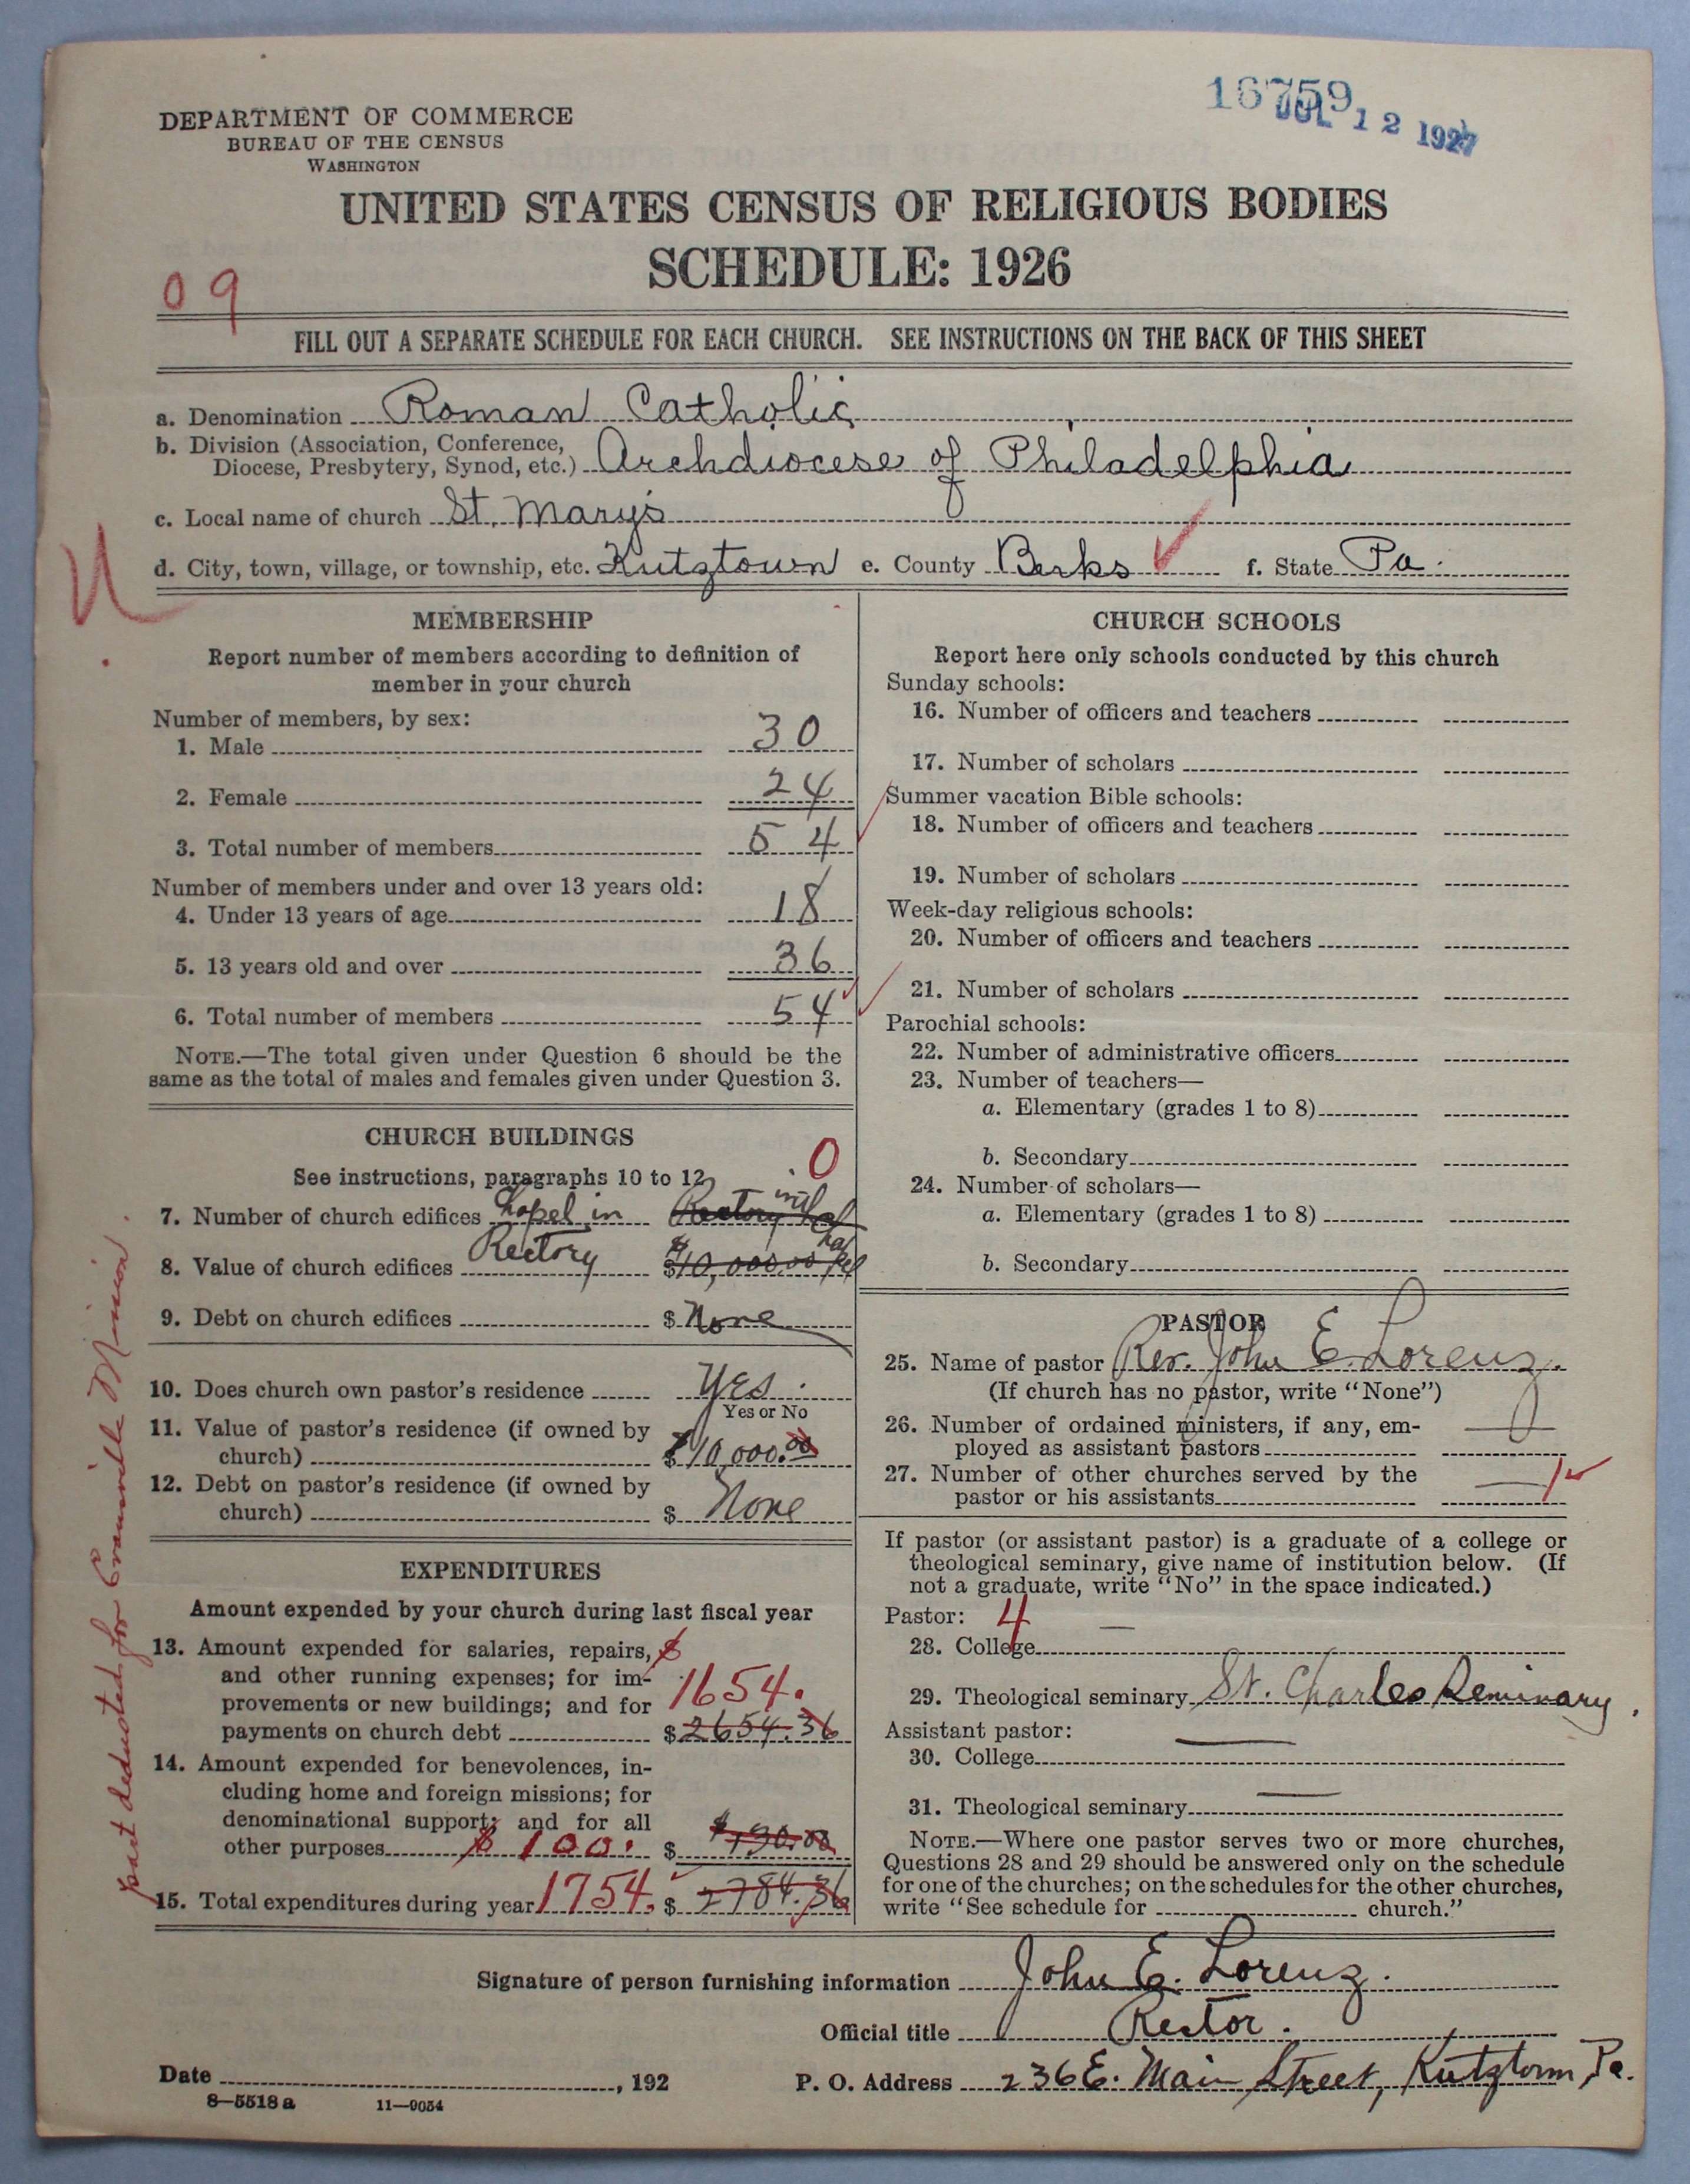 16759
JUL 12 1927
DEPARTMENT OF COMMERCE
BUREAU OF THE CENSUS
WASHINGTON
UNITED STATES CENSUS OF RELIGIOUS BODIES
SCHEDULE: 1926
09
FILL OUT A SEPARATE SCHEDULE FOR EACH CHURCH. SEE INSTRUCTIONS ON THE BACK OF THIS SHEET
a. Denomination Roman Catholic
b. Division (Association, Conference,
Diocese, Presbytery, Synod, etc.) Archdiocese of Philadelphia
c. Local name of church St. Mary's
d. City, town, village, or township, etc. Kutztown e. County Berks f. State Pa.
MEMBERSHIP
Report number of members according to definition of
member in your church
Number of members, by sex:
1. Male 30
2. Female 24
3. Total number of members 54
Number of members under and over 13 years old:
4. Under 13 years of age 18
5. 13 years old and over 36
6. Total number of members 54
NOTE.—The total given under Question 6 should be the
same as the total of males and females given under Question 3.
CHURCH BUILDINGS
See instructions, paragraphs 10 to 12
0
7. Number of church edifices Chapel in Rectory with Chapel
8. Value of church edifices Rectory $10,000.00
9. Debt on church edifices $ None
10. Does church own pastor's residence Yes.
Yes or No
11. Value of pastor's residence (if owned by
church) $10,000.00
12. Debt on pastor's residence (if owned by
church) $ None
EXPENDITURES
Amount expended by your church during last fiscal year
13. Amount expended for salaries, repairs, $
and other running expenses; for im-
provements or new buildings; and for 1654.
payments on church debt $2654.36
14. Amount expended for benevolences, in-
cluding home and foreign missions; for
denominational support; and for all
other purposes $ 100. $ $130.00
15. Total expenditures during year 1754. $ 2784.36
part deducted for Mission.
CHURCH SCHOOLS
Report here only schools conducted by this church
Sunday schools:
16. Number of officers and teachers
17. Number of scholars
Summer vacation Bible schools:
18. Number of officers and teachers
19. Number of scholars
Week-day religious schools:
20. Number of officers and teachers
21. Number of scholars
Parochial schools:
22. Number of administrative officers
23. Number of teachers—
a. Elementary (grades 1 to 8)
b. Secondary
24. Number of scholars—
a. Elementary (grades 1 to 8)
b. Secondary
PASTOR
25. Name of pastor Rev. John E. Lorenz.
(If church has no pastor, write "None")
26. Number of ordained ministers, if any, em-
ployed as assistant pastors —
27. Number of other churches served by the
pastor or his assistants — 1
If pastor (or assistant pastor) is a graduate of a college or
theological seminary, give name of institution below. (If
not a graduate, write "No" in the space indicated.)
Pastor: 4
28. College —
29. Theological seminary St. Charles Seminary.
Assistant pastor:
30. College —
31. Theological seminary —
NOTE.—Where one pastor serves two or more churches,
Questions 28 and 29 should be answered only on the schedule
for one of the churches; on the schedules for the other churches,
write "See schedule for church."
Signature of person furnishing information John E. Lorenz.
Official title Rector.
Date , 192 P. O. Address 236 E. Main Street, Kutztown, Pa.
8—5518a 11—9054